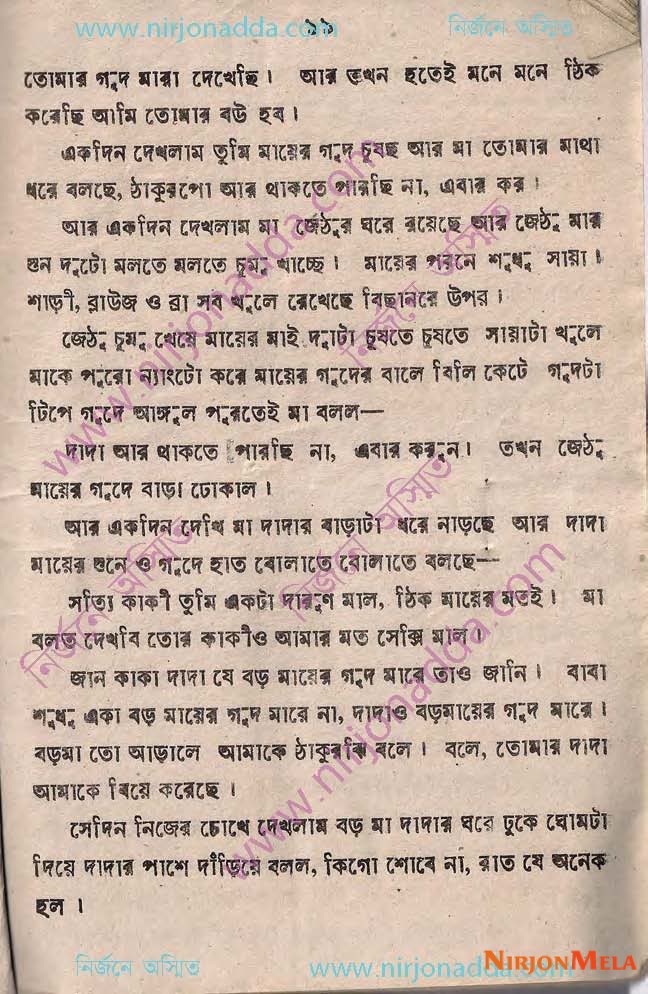 www.nirjonadda.com ১১ নির্জনে অস্মিত
তোমার গুদ মারা দেখেছি। আর তখন হতেই মনে মনে ঠিক
করেছি আমি তোমার বউ হব।
একদিন দেখলাম তুমি মায়ের গুদ চুষছ আর মা তোমার মাথা
ধরে বলছে, ঠাকুরপো আর থাকতে পারছি না, এবার কর।
আর একদিন দেখলাম মা জেঠুর ঘরে রয়েছে আর জেঠু মার
স্তন দুটো মলতে মলতে চুমু খাচ্ছে। মায়ের পরনে শুধু সায়া।
শাড়ী, ব্লাউজ ও ব্রা সব খুলে রেখেছে বিছানার উপর।
জেঠু চুমু খেয়ে মায়ের মাই দুটা চুষতে চুষতে সায়াটা খুলে
মাকে পুরো ন্যাংটো করে মায়ের গুদের বালে বিলি কেটে গুদটা
টিপে গুদে আঙ্গুল পুরতেই মা বলল—
দাদা আর থাকতে পারছি না, এবার করুন। তখন জেঠু
মায়ের গুদে বাড়া ঢোকাল।
আর একদিন দেখি মা দাদার বাড়াটা ধরে নাড়ছে আর দাদা
মায়ের স্তনে ও গুদে হাত বোলাতে বোলাতে বলছে—
সত্যি কাকী তুমি একটা দারুণ মাল, ঠিক মায়ের মতই। মা
বলত দেখবি তোর কাকীও আমার মত সেক্সি মাল।
জান কাকা দাদা যে বড় মায়ের গুদ মারে তাও জানি। বাবা
শুধু একা বড় মায়ের গুদ মারে না, দাদাও বড়মায়ের গুদ মারে।
বড়মা তো আড়ালে আমাকে ঠাকুরঝি বলে। বলে, তোমার দাদা
আমাকে বিয়ে করেছে।
সেদিন নিজের চোখে দেখলাম বড় মা দাদার ঘরে ঢুকে ঘোমটা
দিয়ে দাদার পাশে দাঁড়িয়ে বলল, কিগো শোবে না, রাত যে অনেক
হল।
www.nirjonadda.com
নির্জনে অস্মিত
নির্জনে অস্মিত
নির্জনে অস্মিত
www.nirjonadda.com
NIRJONMELA
নির্জনে অস্মিত www.nirjonadda.com